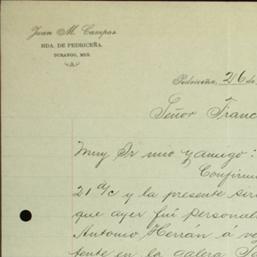 Juan M. Campos
HDA. DE PEDRICEÑA.
DURANGO, MEX.
Pedriceña, 26 de
Señor Franc
Muy Sr mio y amigo:
Confirm
21 a/c y la presente ser
que ayer fui personal
Antonio Herrán á ve
tente en la galera